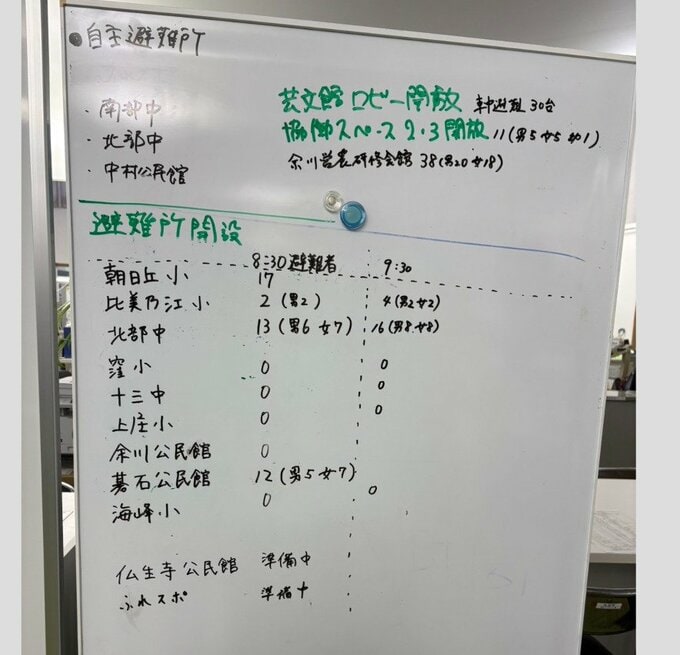 ●自主避難所
・南部中
・北部中
・中村公民館
芸文館ロビー開放 車中避難 30台
協働スペース2・3開放 11(男5女5幼1)
余川営農研修会館 38(男20女18)
避難所開設
8:30避難者 9:30
朝日丘小 17
比美乃江小 2(男2) 4(男2女2)
北部中 13(男6女7) 16(男8女8)
窪小 0 0
十三中 0 0
上庄小 0 0
余川公民館 0
碁石公民館 12(男5女7)
海峰小 0 0
仏生寺公民館 準備中
ふれスポ 準備中